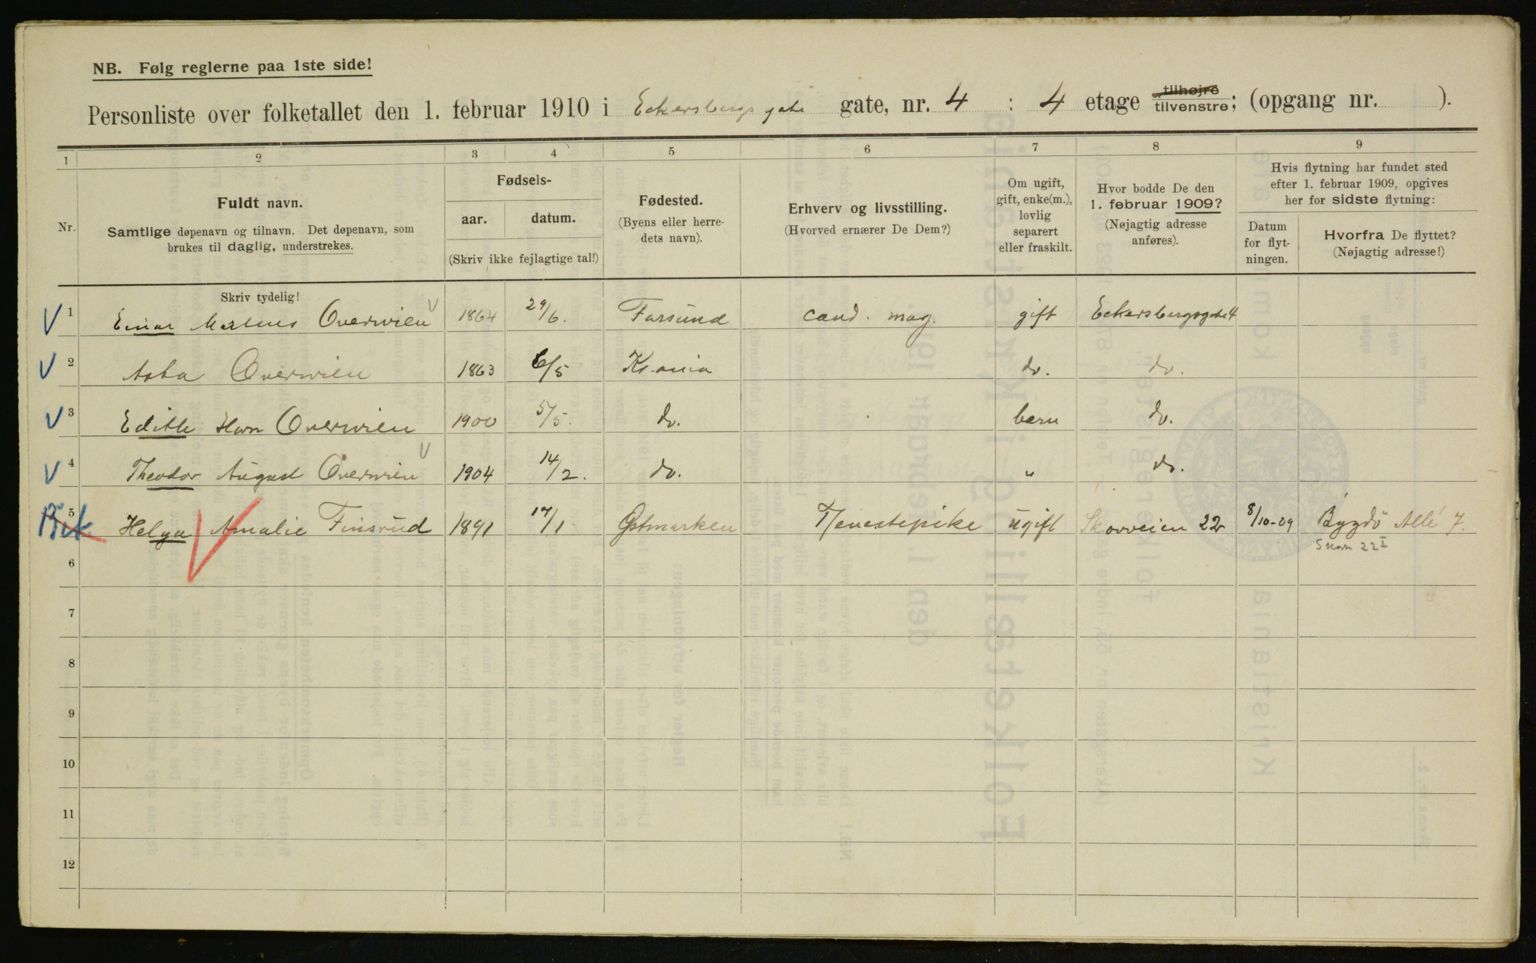 NB. Følg reglerne paa 1ste side!
Personliste over folketallet den 1. februar 1910 i Eckersbergs gate gate, nr. 4 : 4 etage tilhøjre tilvenstre; (opgang nr. ).
1 2 3 4 5 6 7 8 9
Nr.
Fuldt navn.
Samtlige døpenavn og tilnavn. Det døpenavn, som
brukes til daglig, understrekes.
Skriv tydelig!
Fødsels-
aar. datum.
(Skriv ikke fejlagtige tal!)
Fødested.
(Byens eller herre-
dets navn).
Erhverv og livsstilling.
(Hvorved ernærer De Dem?)
Om ugift,
gift, enke(m.),
lovlig
separert
eller fraskilt.
Hvor bodde De den
1. februar 1909?
(Nøjagtig adresse
anføres).
Hvis flytning har fundet sted
efter 1. februar 1909, opgives
her for sidste flytning:
Datum
for flyt-
ningen.
Hvorfra De flyttet?
(Nøjagtig adresse!)
1 Einar Overwien 1864 29/6. Farsund cand. mag. gift Eckersbergsgate 4
2 Asta Overwien 1863 6/5 Kr.ania do. do.
3 Edith Horn Overwien 1900 5/5. do. barn do.
4 Theodor August Overwien 1904 14/2. do. " do.
5 Helga Amalie Finsrud 1891 17/1 Østmarken Tjenestepike ugift Skovveien 22 8/10-09 Bygdö Allé 7.
Skov 22 I
6
7
8
9
10
11
12